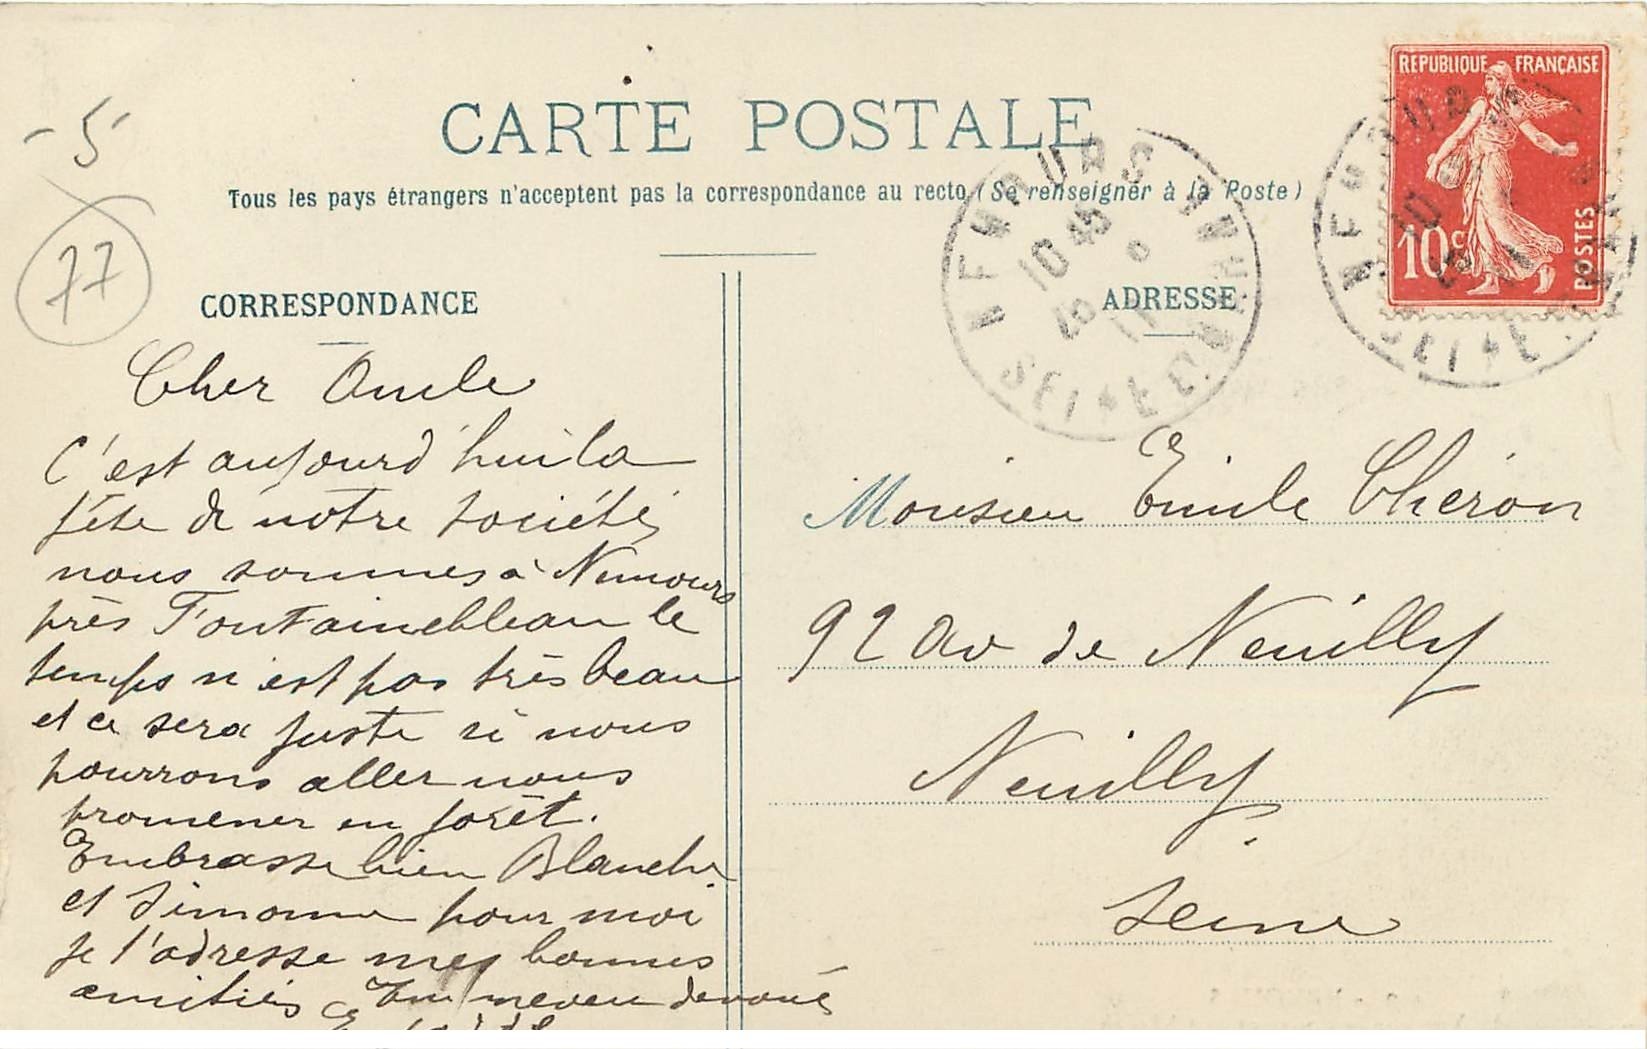 CARTE POSTALE
Tous les pays étrangers n'acceptent pas la correspondance au recto (Se renseigner à la Poste)
- 5 -
77
CORRESPONDANCE
Cher Oncle
C'est aujourd'hui la
fête de notre société,
nous sommes à Nemours
près Fontainebleau le
temps n'est pas très beau
et ce sera juste si nous
pourrons aller nous
promener en forêt.
Embrasse bien Blanche
et Simonne pour moi
je t'adresse mes bonnes
amitiés Ton neveu dévoué
ADRESSE
Monsieur Emile Chéron
92 Av de Neuilly
Neuilly
Seine
RÉPUBLIQUE FRANÇAISE
10c
POSTES
NEMOURS
10 45
SEINE